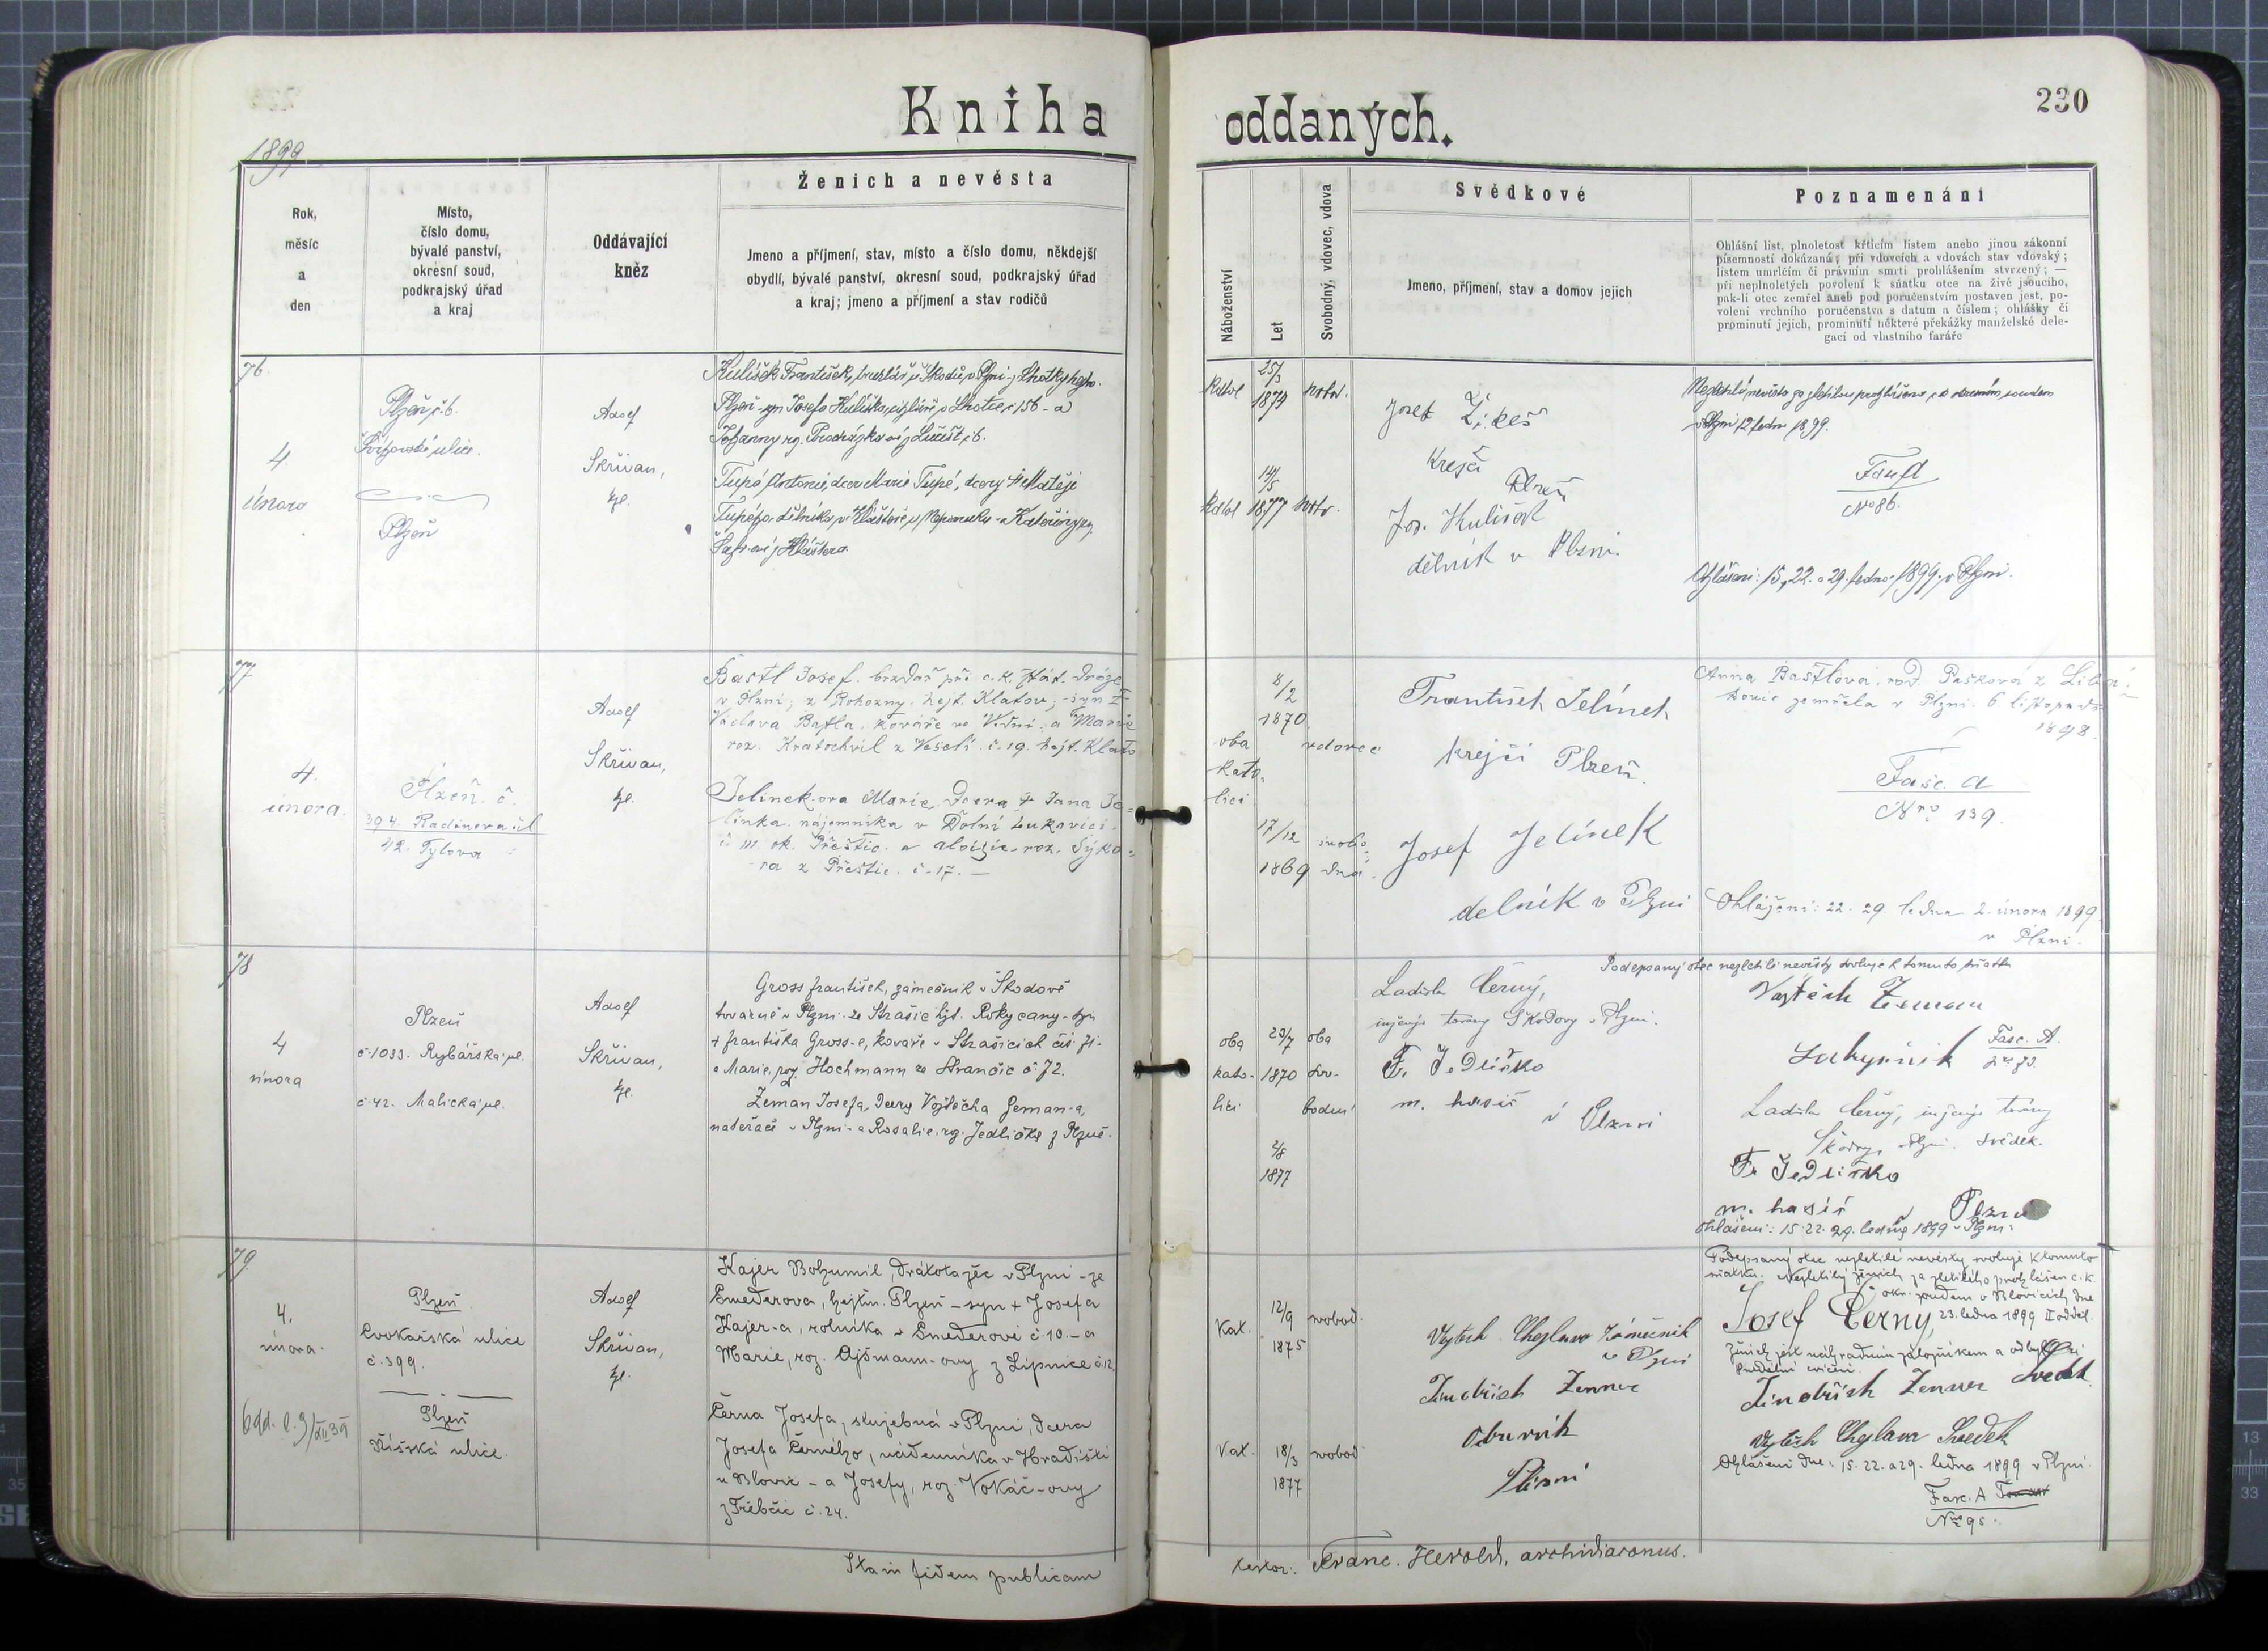 Kniha oddaných.
230
1899
Ženich a nevěsta
Rok,
měsíc
a
den
Místo,
číslo domu,
bývalé panství,
okresní soud,
podkrajský úřad
a kraj
Oddávající
kněz
Jmeno a příjmení, stav, místo a číslo domu, někdejší
obydlí, bývalé panství, okresní soud, podkrajský úřad
a kraj; jmeno a příjmení a stav rodičů
Náboženství
Let
Svobodný, vdovec, vdova
Svědkové
Jmeno, příjmení, stav a domov jejich
Poznamenání
Ohlášní list, plnoletost křticím listem anebo jinou zákonní
písemností dokázaná; při vdovcích a vdovách stav vdovský;
listem umrlčím či právním smrti prohlášením stvrzený; —
při neplnoletých povolení k sňatku otce na živě jsoucího,
pak-li otec zemřel aneb pod poručenstvím postaven jest, po-
volení vrchního poručenstva s datum a číslem; ohlášky či
prominutí jejich, prominutí některé překážky manželské dele-
gací od vlastního faráře
76.
4.
února
Plzeň, č. 6.
Plzeň
Adolf
Skřivan,
kpl.
Kulíšek František, truhlář u Škodů v Plzni
Plzeň - syn Josefa Kulíška
Johanny roz. Procházkové z
Tupá Antonie, dcera Marie Tupé, dcery † Matěje
Tupého, dělníka v Klášteře u Nepomuku - a Kateřiny roz.
z Kláštera
25/3
1874
14/5
1877
Josef
Krejčí
Plzeň
Jos. Kulíšek
dělník v Plzni.
v Plzni 12. ledna 1899.
No 86.
Ohlášeni: 15., 22. a 29. ledna 1899 v Plzni.
77
4.
února.
Plzeň. č.
394. Radinova ul
42. Tylova
Adolf
Skřivan,
kpl.
Bastl Josef. brzdař při c. k. stát. dráze
v Plzni; z Rohozny. hejt. Klatov; - syn †
Václava Bastla. kováře ve Vídni: a Marie
roz. Kratochvil z Veselí. č. 19. hejt. Klato
Jelínek-ova Marie. Dcera † Jana Je-
línka. nájemníka v Dolní Lukavici.
č. m. ok. Přeštic. a Aloisie. roz. Sýko-
ra z Přeštic. č. 17. —
oba
kato-
líci
8/2
1870.
17/12
1869
vdovec
svobo-
dná.
František Jelínek
krejčí Plzeň.
Josef Jelínek
delník v Plzni
Anna Baštlova. rod. Pašková z
zemřela v Plzni. 6. listopadu
1898.
Fasc. A
Nro 139.
Ohlášeni: 22. 29. ledna 2. února 1899.
v Plzni.
78
4
února
Plzeň
č. 1033. Rybářská ul.
č. 42. Malická ul.
Adolf
Skřivan,
kpl.
Gross František, zámečník v Škodově
továrně v Plzni. ze Strašic hjt. Rokycany - syn
† Františka Gross-e, kováře v Strašicích
a Marie, roz. Hochmann ze Strančic č. 72.
Zeman Josefa, dcery Vojtěcha Zeman-a,
v Plzni - a Rosalie, roz. Jedličky z Plzně.
oba
kato-
líci
23/7
1870
2/8
1877
oba
svo-
bodní
Ladislav Černý,
inženýr továrny Škodovy v Plzni.
Fr. Jedlička
m. hasič
v Plzni
Podepsaný otec nezletilé nevěsty svoluje k tomuto sňatku
Vojtěch Zeman
Fasc. A.
Ladislav Černý, inženýr továrny
Škodovy v Plzni. svědek.
Fr. Jedlička
m. hasič v Plzni
Ohlášeni: 15. 22. 29. ledna 1899 v Plzni.
79.
4.
února.
Plzeň
Cvokařská ulice
č. 399.
Plzeň
Říšská ulice.
Adolf
Skřivan,
kpl.
Kajer Bohumil, drákotažec v Plzni - ze
Směderova, hejtm. Plzeň - syn † Josefa
Kajer-a, rolníka v Směderově č. 10. - a
Marie, roz. Ajšmann-ovy z Lipnice č. 12.
Černa Josefa, služebná v Plzni, dcera
Josefa Černého, nádenníka v Hradišti
u Blovic - a Josefy, roz. Vokáč-ovy
z Třebčic č. 24.
Kat.
Kat.
12/9
1875
18/3
1877
svobod.
svobod
Vojtěch Cheglava Zámečník
v Plzni
Jindřich Zenner
Obuvník
Plzni
Podepsaný otec nezletilé nevěsty svoluje k tomuto
sňatku. Nezletilý ženich za zletilého prohlášen c. k.
okr. soudem v Blovicích dne
Josef Černy, 23. ledna 1899 II odděl.
Ženich jest náhradním záložníkem a odbyl
cvičení.
Jindřich Zenner Svědek
Vojtěch Cheglava Svedek
Ohlášeni dne: 15. 22. a 29. ledna 1899 v Plzni.
Fasc. A
Nro 95.
Itam fidem publicam
testor: Franc. Herold, archidiaconus.